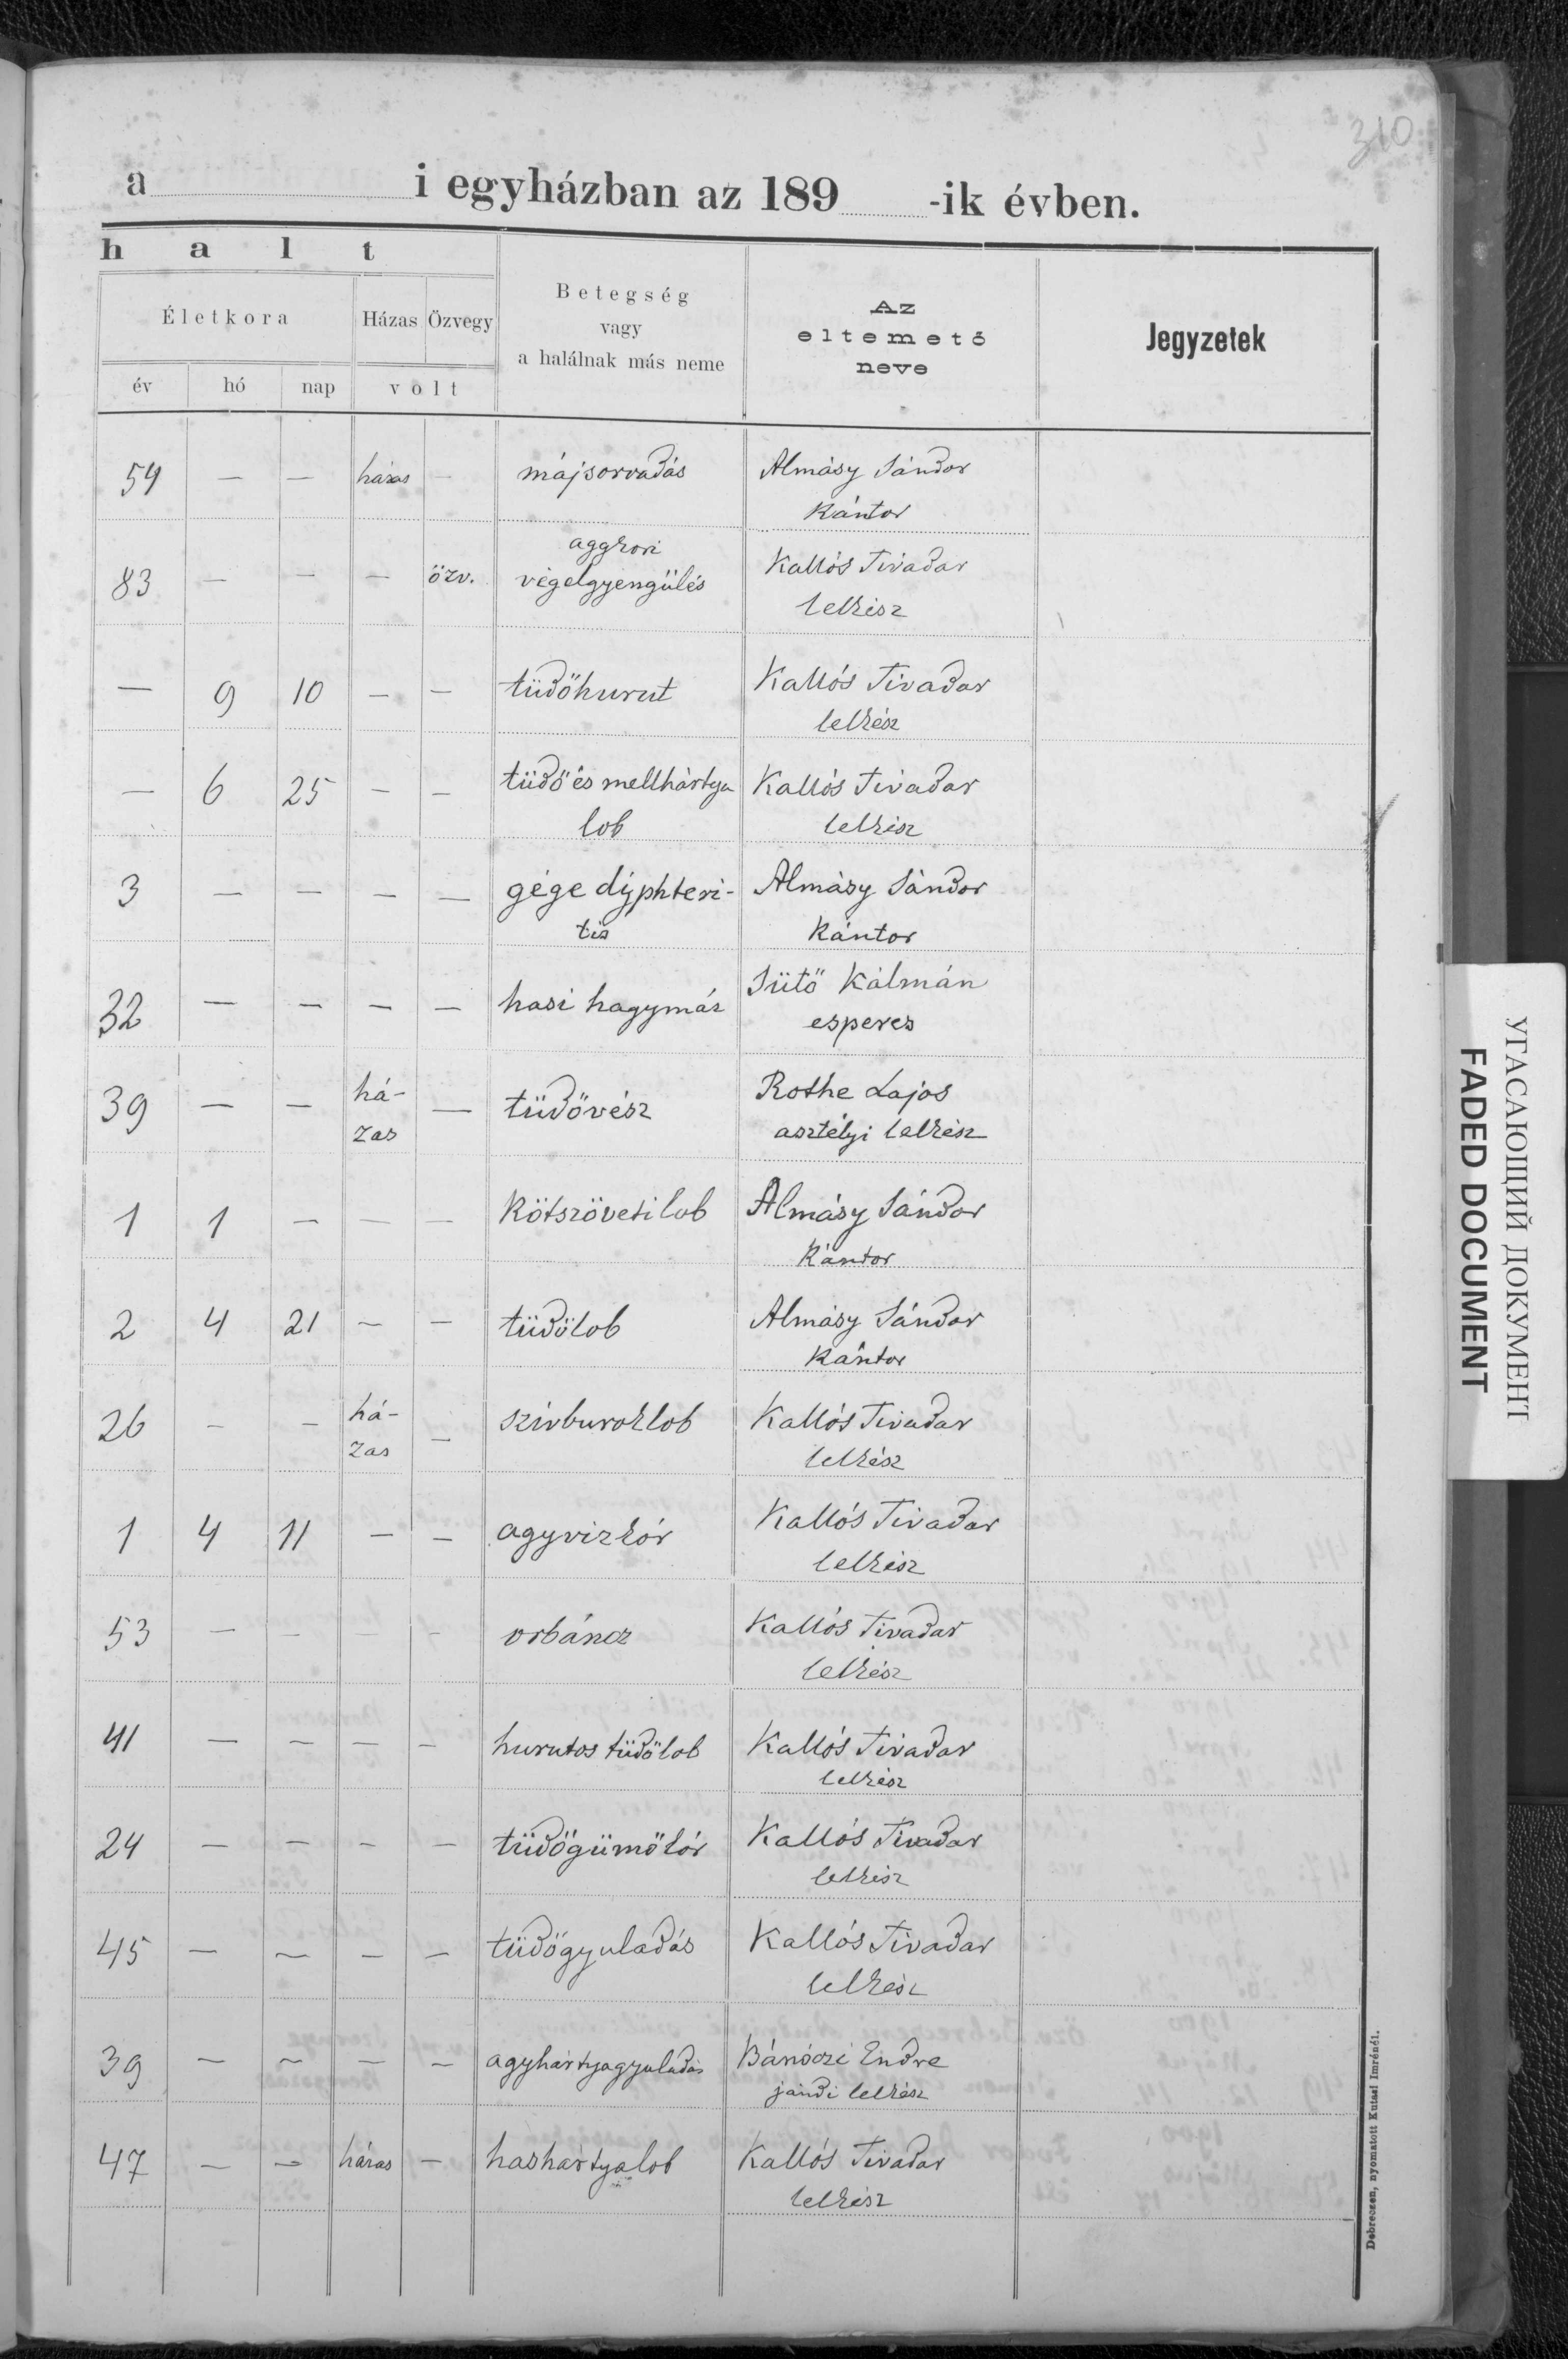 310
a i egyházban az 189 -ik évben.
h a l t
Életkora Házas Özvegy Betegség vagy a halálnak más neme Az eltemető neve Jegyzetek
év hó nap volt
54 — — házas — májsorvadás Almásy Sándor
Kántor
aggkori
83 — — — özv. végelgyengülés Kallós Tivadar
lelkész
— 9 10 — — tüdőhurut Kallós Tivadar
lelkész
— 6 25 — — tüdő és mellhártya Kallós Tivadar
lob lelkész
3 — — — — gége dyphteri- Almásy Sándor
tis Kántor
32 — — — — hasi hagymáz Sütő Kálmán
esperes
39 — — há- — tüdővész Rothe Lajos
zas asztélyi lelkész
1 1 — — — Kötszöveti lob Almásy Sándor
Kántor
2 4 21 — — tüdőlob Almásy Sándor
Kántor
26 — — há- — szivburoklob Kallós Tivadar
zas lelkész
1 4 11 — — agyvizkór Kallós Tivadar
lelkész
53 — — — — orbáncz Kallós Tivadar
lelkész
41 — — — — hurutos tüdőlob Kallós Tivadar
lelkész
24 — — — — tüdőgümőkór Kallós Tivadar
lelkész
45 — — — — tüdőgyuladás Kallós Tivadar
lelkész
39 — — — — agyhártyagyuladás Bánóczi Endre
jándi lelkész
47 — — házas — hashártyalob Kallós Tivadar
lelkész
Debreczen, nyomatott Kutasi Imrénél.
УГАСАЮЩИЙ ДОКУМЕНТ
FADED DOCUMENT